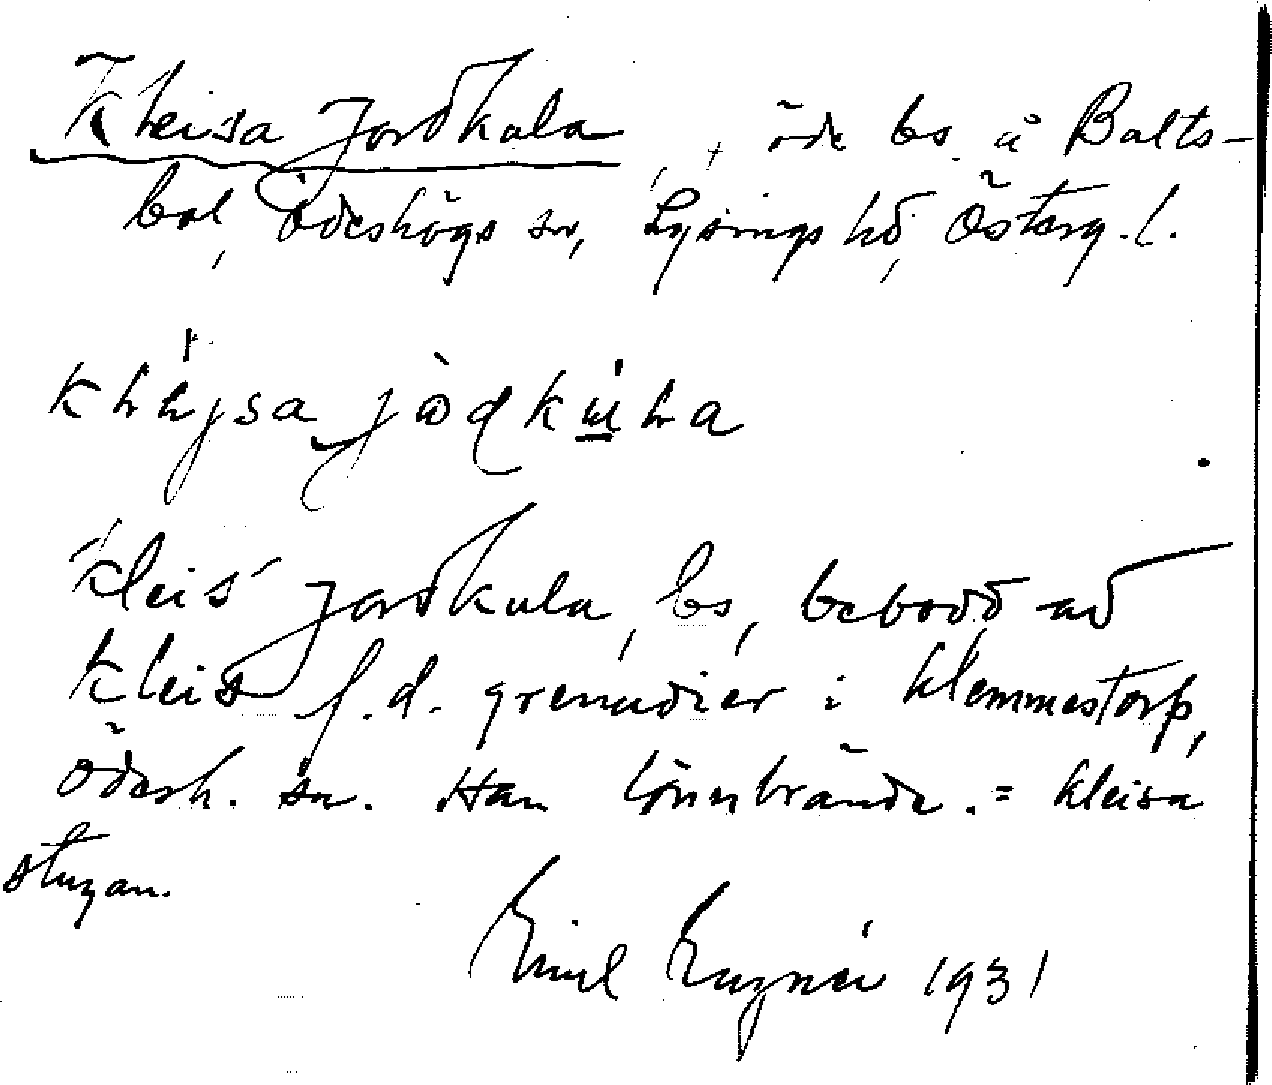 Kleisa Jordkula, öde bs. å Balts-
bol, Ödeshögs sn, Lysings hd, Österg.l.
Kleis' Jordkula, bs, bebodd av
Kleis f.d. grenadier i Klemmestorp,
Ödesh. sn. Han lönnbrände. = Kleisa
stugan.
Emil 1931